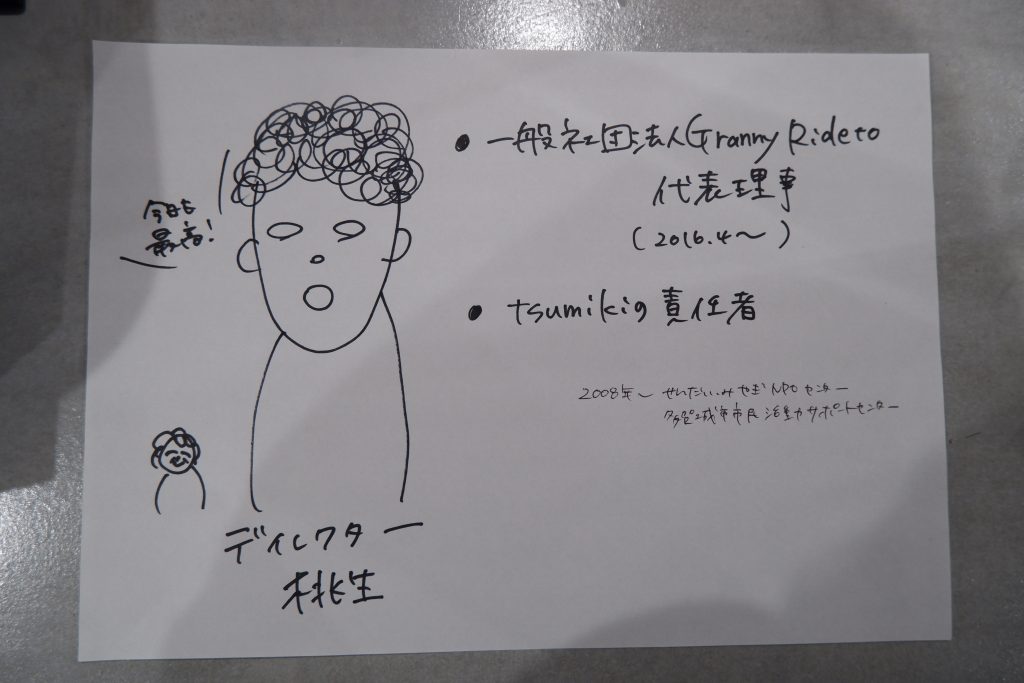 今日も
最高!
• 一般社団法人Granny Rideto
代表理事
(2016.4〜)
• tsumikiの責任者
2008年〜 せんだい・みやぎNPOセンター
多賀城市市民活動サポートセンター
ディレクター
桃生